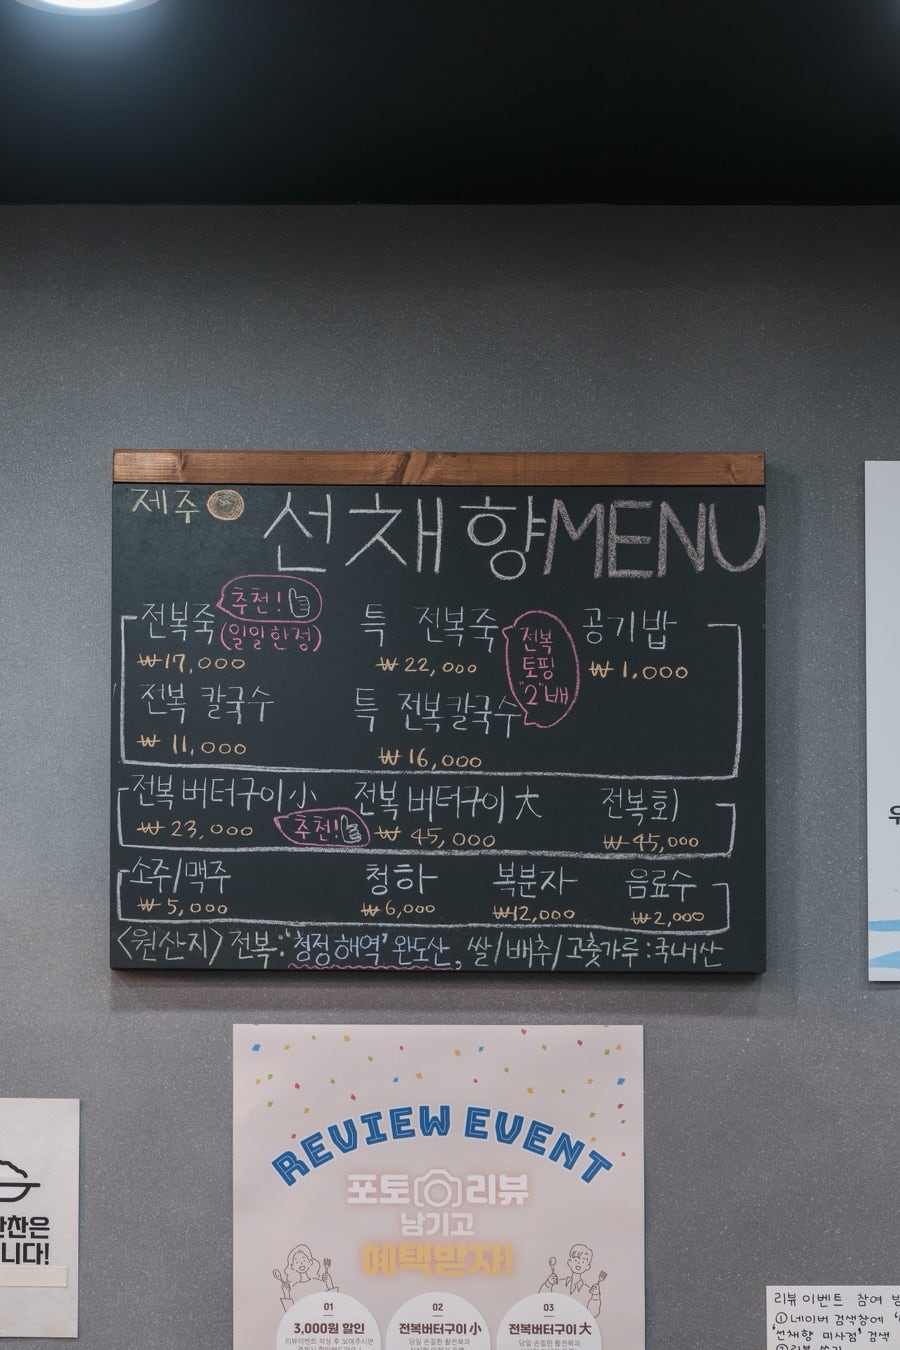 제주 선채향 MENU
전복죽 추천! (일일한정) 특 전복죽 공기밥
₩17,000 ₩22,000 ₩1,000
전복 토핑 "2"배
전복 칼국수 특 전복칼국수
₩11,000 ₩16,000
전복버터구이 小 전복버터구이 大 전복회
₩23,000 추천! ₩45,000 ₩45,000
소주/맥주 청하 복분자 음료수
₩5,000 ₩6,000 ₩12,000 ₩2,000
<원산지> 전복:"청정해역" 완도산, 쌀/배추/고춧가루:국내산
REVIEW EVENT
포토 리뷰
남기고
혜택받자!
01 02 03
3,000원 할인 전복버터구이 小 전복버터구이 大
리뷰이벤트 작성 후 보여주시면 당일 손질한 활전복과 당일 손질한 활전복과
찬은
니다!
리뷰 이벤트 참여
①네이버 검색창에
'선채향 미사점' 검색